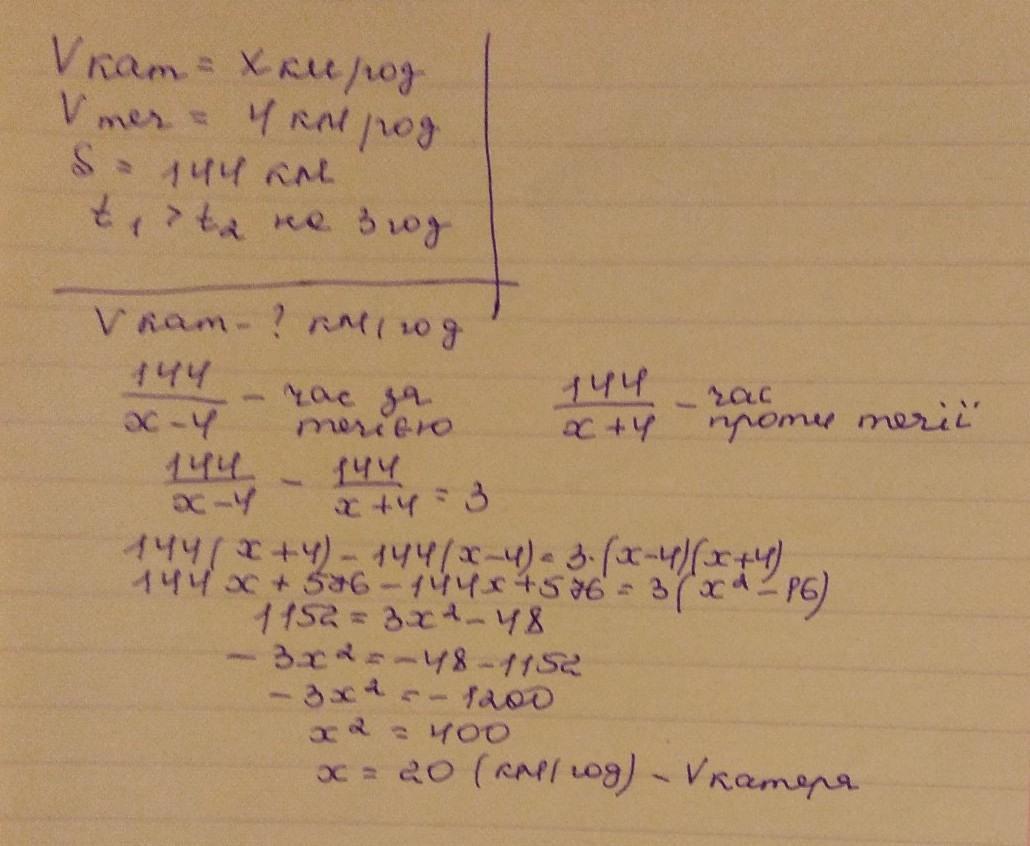 Vкат = x км/год
Vтеч = 4 км/год
S = 144 км
t₁ > t₂ на 3 год
Vкат - ? км/год
144/(x-4) - час за течією
144/(x+4) - час проти течії
144/(x-4) - 144/(x+4) = 3
144(x+4) - 144(x-4) = 3·(x-4)(x+4)
144x + 576 - 144x + 576 = 3(x² - 16)
1152 = 3x² - 48
-3x² = -48 - 1152
-3x² = -1200
x² = 400
x = 20 (км/год) - Vкатера